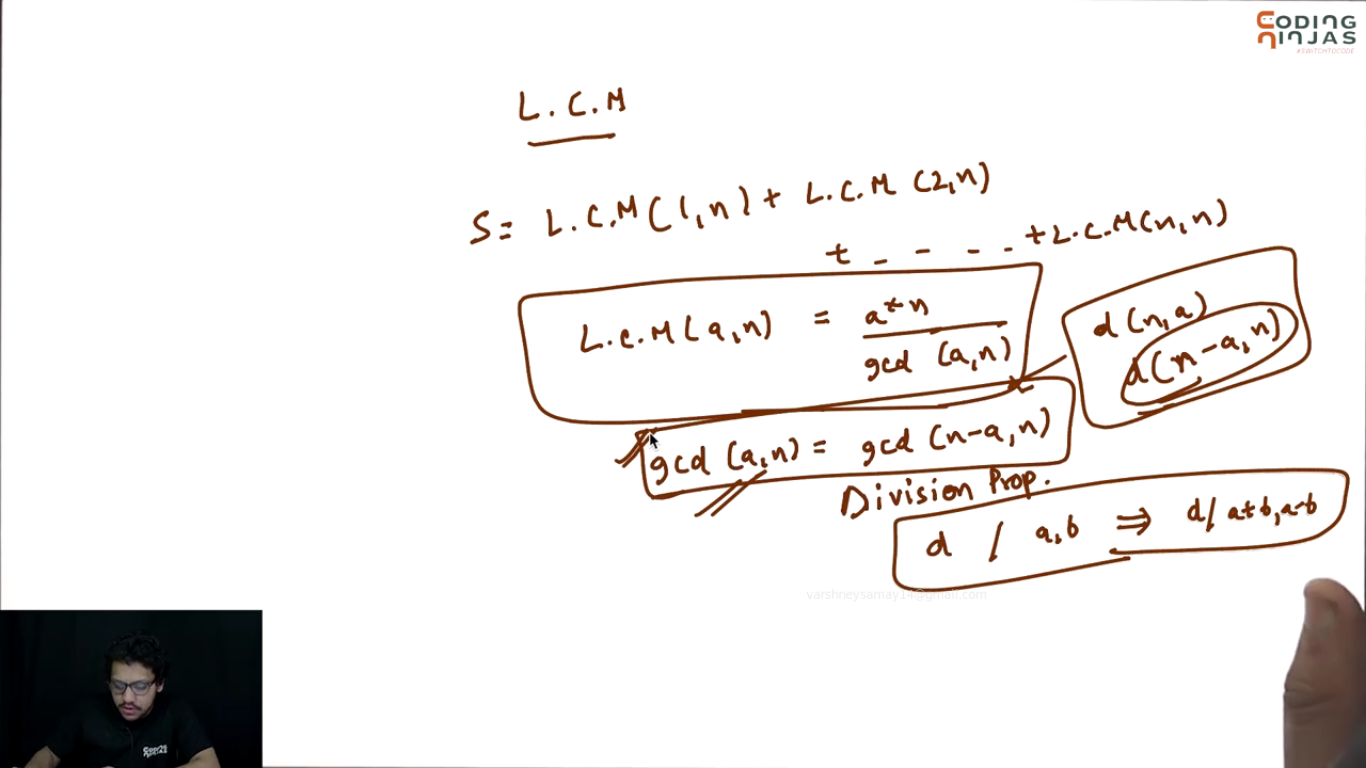 CODING
NINJAS
#SWITCHTOCODE
L.C.M
S = L.C.M (1,n) + L.C.M (2,n)
+ - - - - + L.C.M (n,n)
L.C.M (a,n) = a*n / gcd (a,n)
d (n,a)
d (n-a,n)
gcd (a,n) = gcd (n-a,n)
Division Prop.
d / a,b ⇒ d/ a+b, a-b
varshneysamay14@gmail.com
CODING
NINJAS